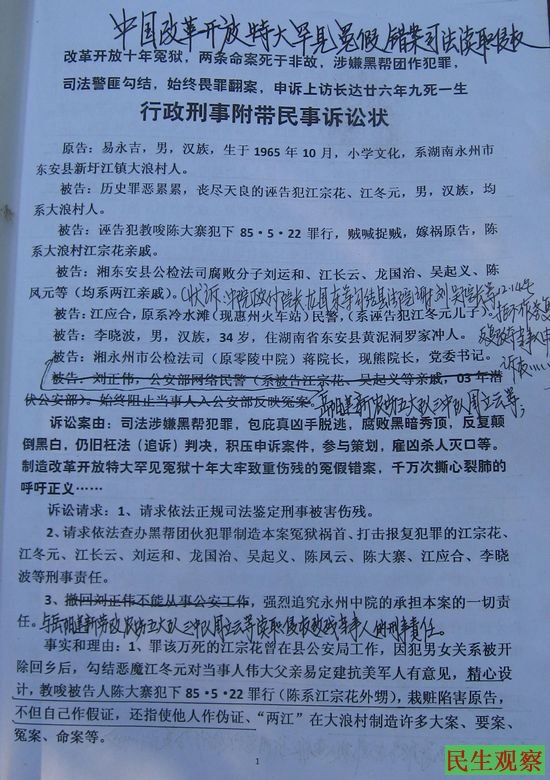 中国改革开放特大罕见冤假错案司法渎职侵权
改革开放十年冤狱，两条命案死于非故，涉嫌黑帮团作犯罪，
司法警匪勾结，始终畏罪翻案，申诉上访长达廿六年九死一生
行政刑事附带民事诉讼状
原告：易永吉，男，汉族，生于 1965 年 10 月，小学文化，系湖南永州市
东安县新圩江镇大浪村人。
被告：历史罪恶累累，丧尽天良的诬告犯江宗花、江冬元，男，汉族，均
系大浪村人。
被告：诬告犯教唆陈大寨犯下 85·5·22 罪行，贼喊捉贼，嫁祸原告，陈
系大浪村江宗花亲戚。
被告：湘东安县公检法司腐败分子刘运和、江长云、龙国治、吴起义、陈
凤元等（均系两江亲戚）。
被告：江应合，原系冷水滩（现惠州火车站）民警，（系诬告犯江冬元儿子）
被告：李晓波，男，汉族，34 岁，住湖南省东安县黄泥洞罗家冲人。
被告：湘永州市公检法司（原零陵中院）蒋院长，现熊院长，党委书记。
被告：刘正伟，公安部网络民警（系被告江宗花、吴起义等亲戚，03 年潜
伏公安部）。始终阻止当事人入公安部反映冤案。岳阳建新农场五大队三中队周立云等；
诉讼案由：司法涉嫌黑帮犯罪，包庇真凶手脱逃，腐败黑暗秀顶，反复颠
倒黑白，仍旧枉法（追诉）判决，积压申诉案件，参与策划，雇凶杀人灭口等。
制造改革开放特大罕见冤狱十年大牢致重伤残的冤假错案，千万次撕心裂肺的
呼吁正义……
诉讼请求：1、请求依法正规司法鉴定刑事被害伤残。
2、请求依法查办黑帮团伙犯罪制造本案冤狱祸首、打击报复犯罪的江宗花、
江冬元、江长云、刘运和、龙国治、吴起义、陈凤云、陈大寨、江应合、李晓
波等刑事责任。
3、撤回刘正伟不能从事公安工作，强烈追究永州中院的承担本案的一切责
任。与岳阳建新劳改农场五大队三中队周立云等渎职侵权致残当事人的刑事责任。
事实和理由：1、罪该万死的江宗花曾在县公安局工作，因犯男女关系被开
除回乡后，勾结恶魔江冬元对当事人伟大父亲易定建抗美军人有意见，精心设
计，教唆被告人陈大寨犯下 85·5·22 罪行（陈系江宗花外甥），栽赃陷害原告，
不但自己作假证，还指使他人作伪证、“两江”在大浪村制造许多大案、要案、
冤案、命案等。
1
民生观察